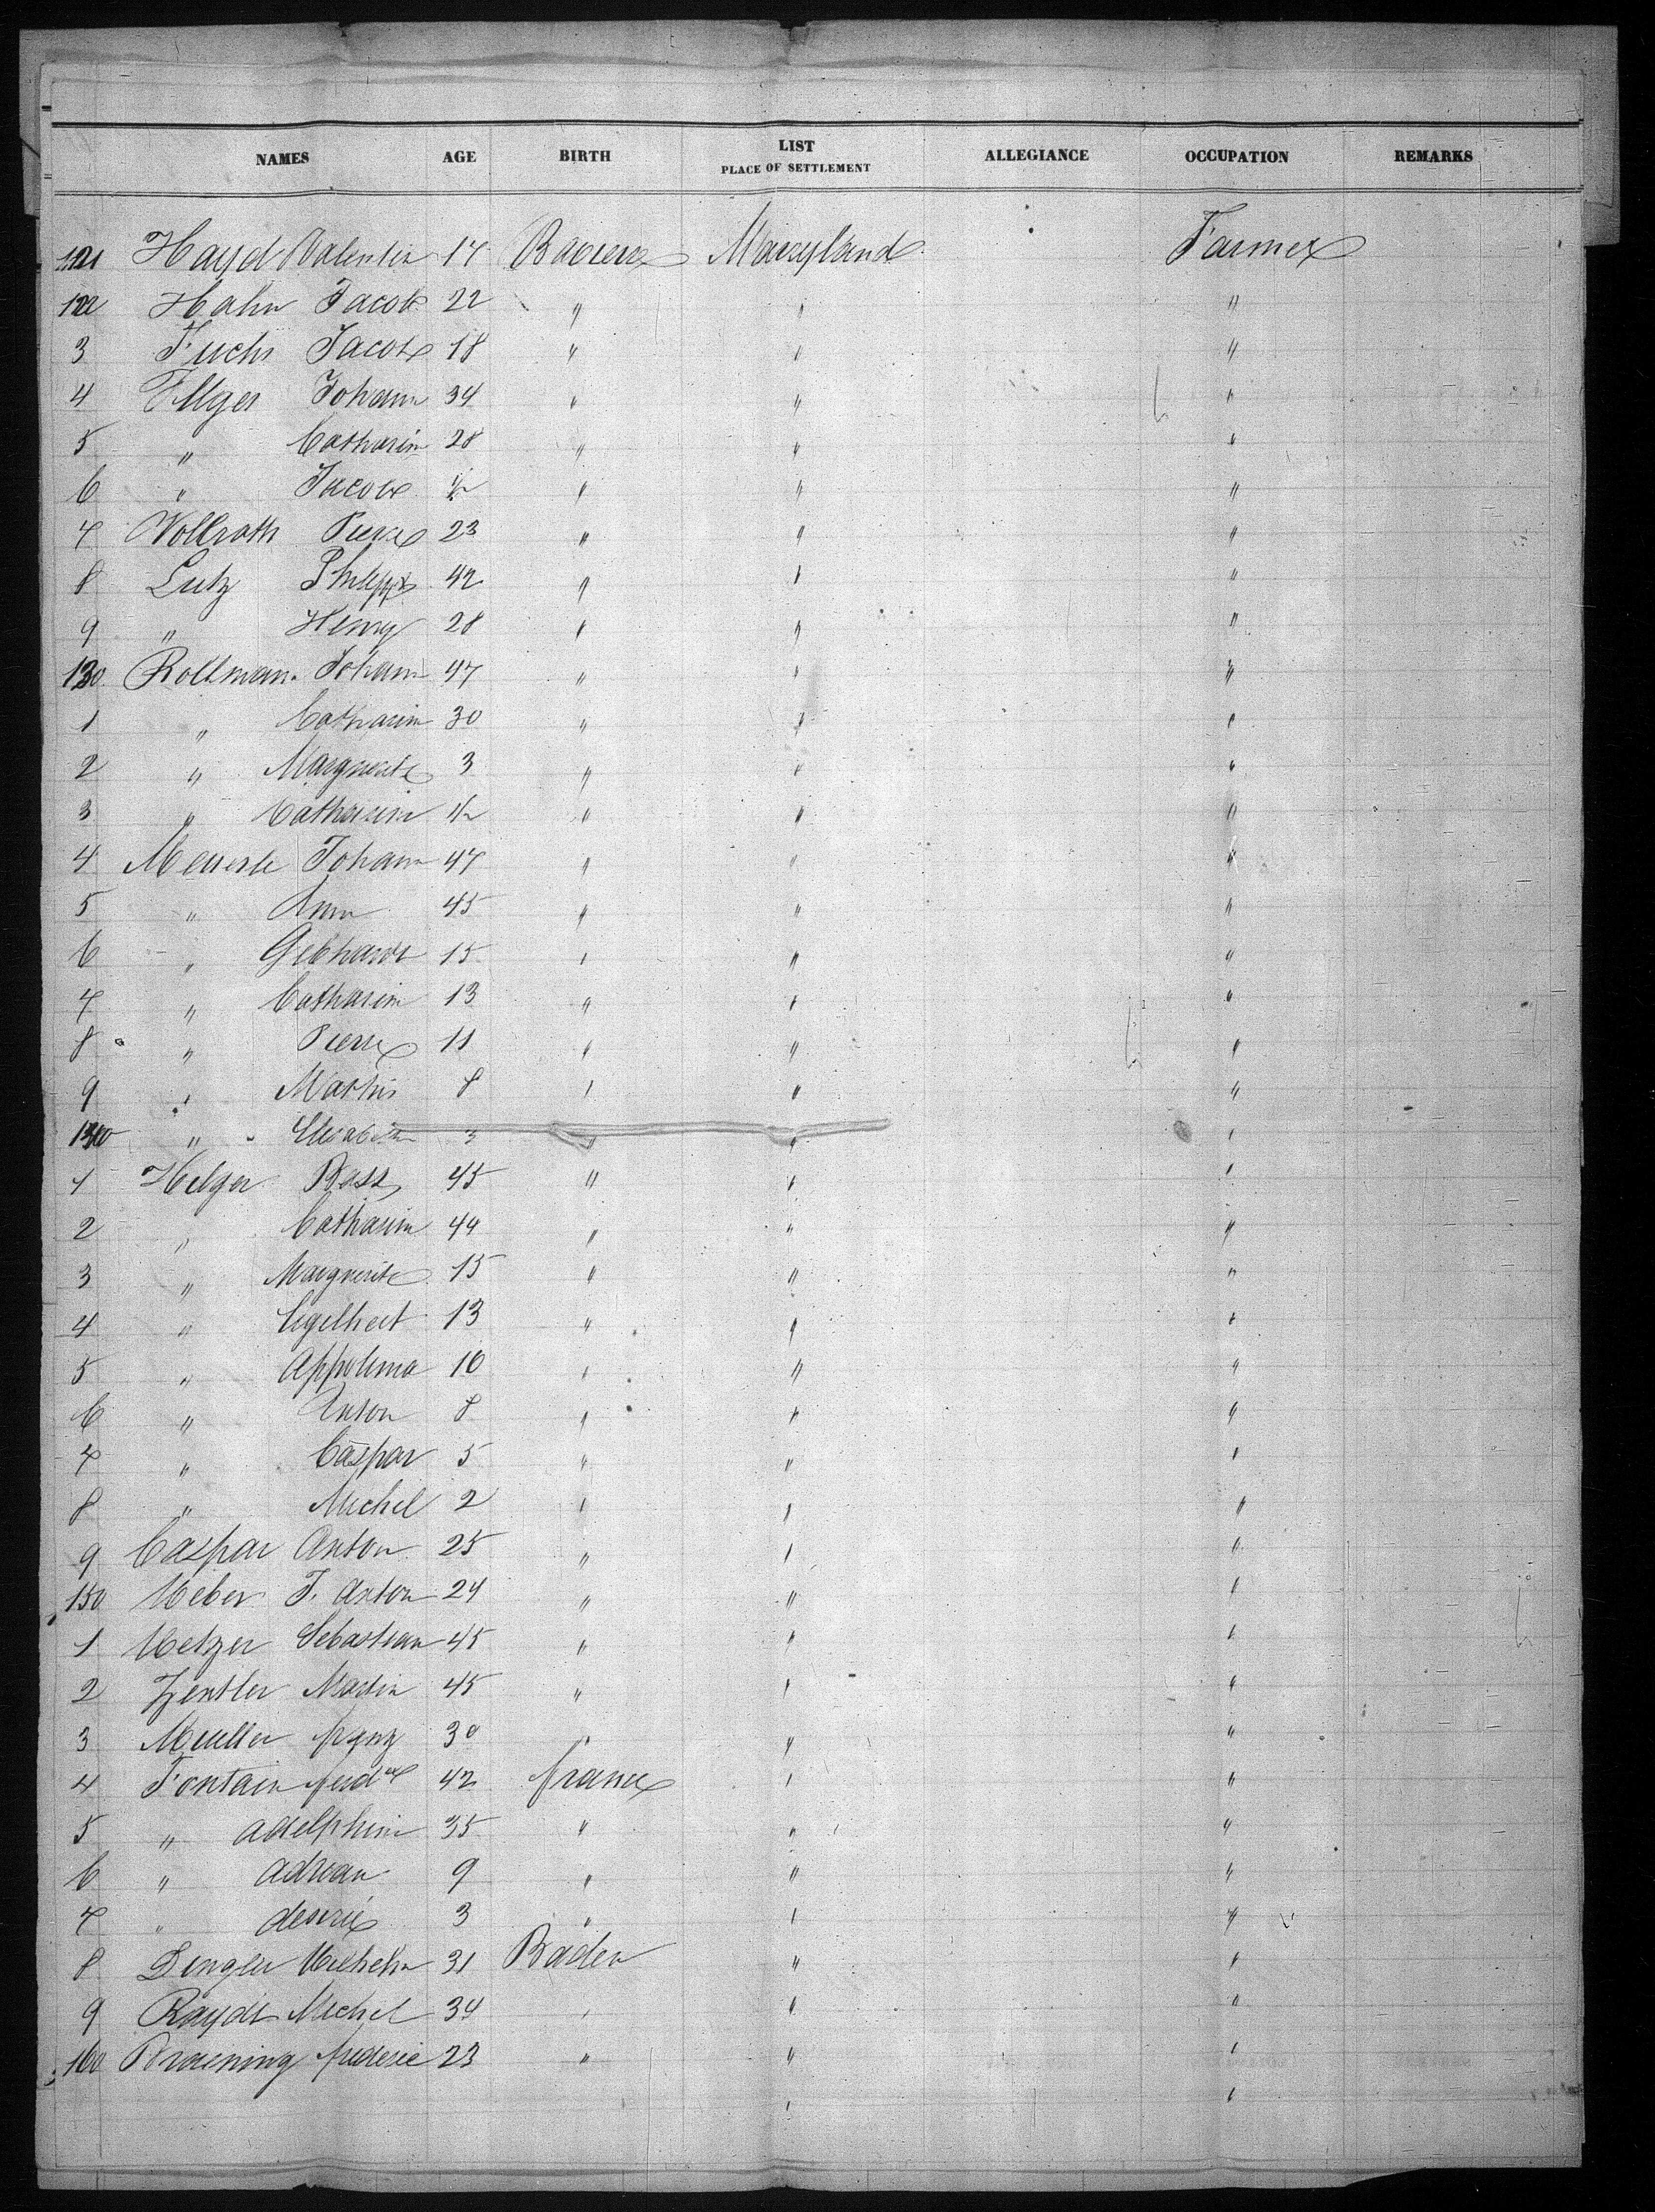 NAMES AGE BIRTH LIST PLACE OF SETTLEMENT ALLEGIANCE OCCUPATION REMARKS
121 Hayd Valentin 17 Maryland Farmer
122 Hahn Jacob 22 " " "
3 Fuchs Jacob 18 " " "
4 Johann 34 " " "
5 " Catharin 28 " " "
6 " Jacob 1/2 " " "
7 Vollrath Pierre 23 " " "
8 Lutz Philipp 42 " " "
9 " Henry 28 " " "
130 Rollman Johann 47 " " "
1 " Catharin 30 " " "
2 " Marguerite 3 " " "
3 " Catharin 1/2 " " "
4 Johann 47 " " "
5 " Ann 45 " " "
6 " Gebhardt 15 " " "
7 " Catharin 13 " " "
8 " Pierre 11 " " "
9 " Mathis 8 " " "
140 " Elisabeth 3 " " "
1 Helger 45 " " "
2 " Catharin 44 " " "
3 " Marguerite 15 " " "
4 " 13 " " "
5 " Appolima 10 " " "
6 " Anton 8 " " "
7 " Caspar 5 " " "
8 " Michel 2 " " "
9 Caspar Anton 25 " " "
150 Weber J. Anton 24 " " "
1 Metzer Sebastian 45 " " "
2 Zentler Martin 45 " " "
3 Mueller franz 30 " " "
4 Fontain 42 france " "
5 " adelphin 35 " " "
6 " adrian 9 " " "
7 " desirée 3 " " "
8 Dengler Wilhelm 31 Baden " "
9 Raydt Michel 34 " " "
160 Braening frederic 23 " " "
" "